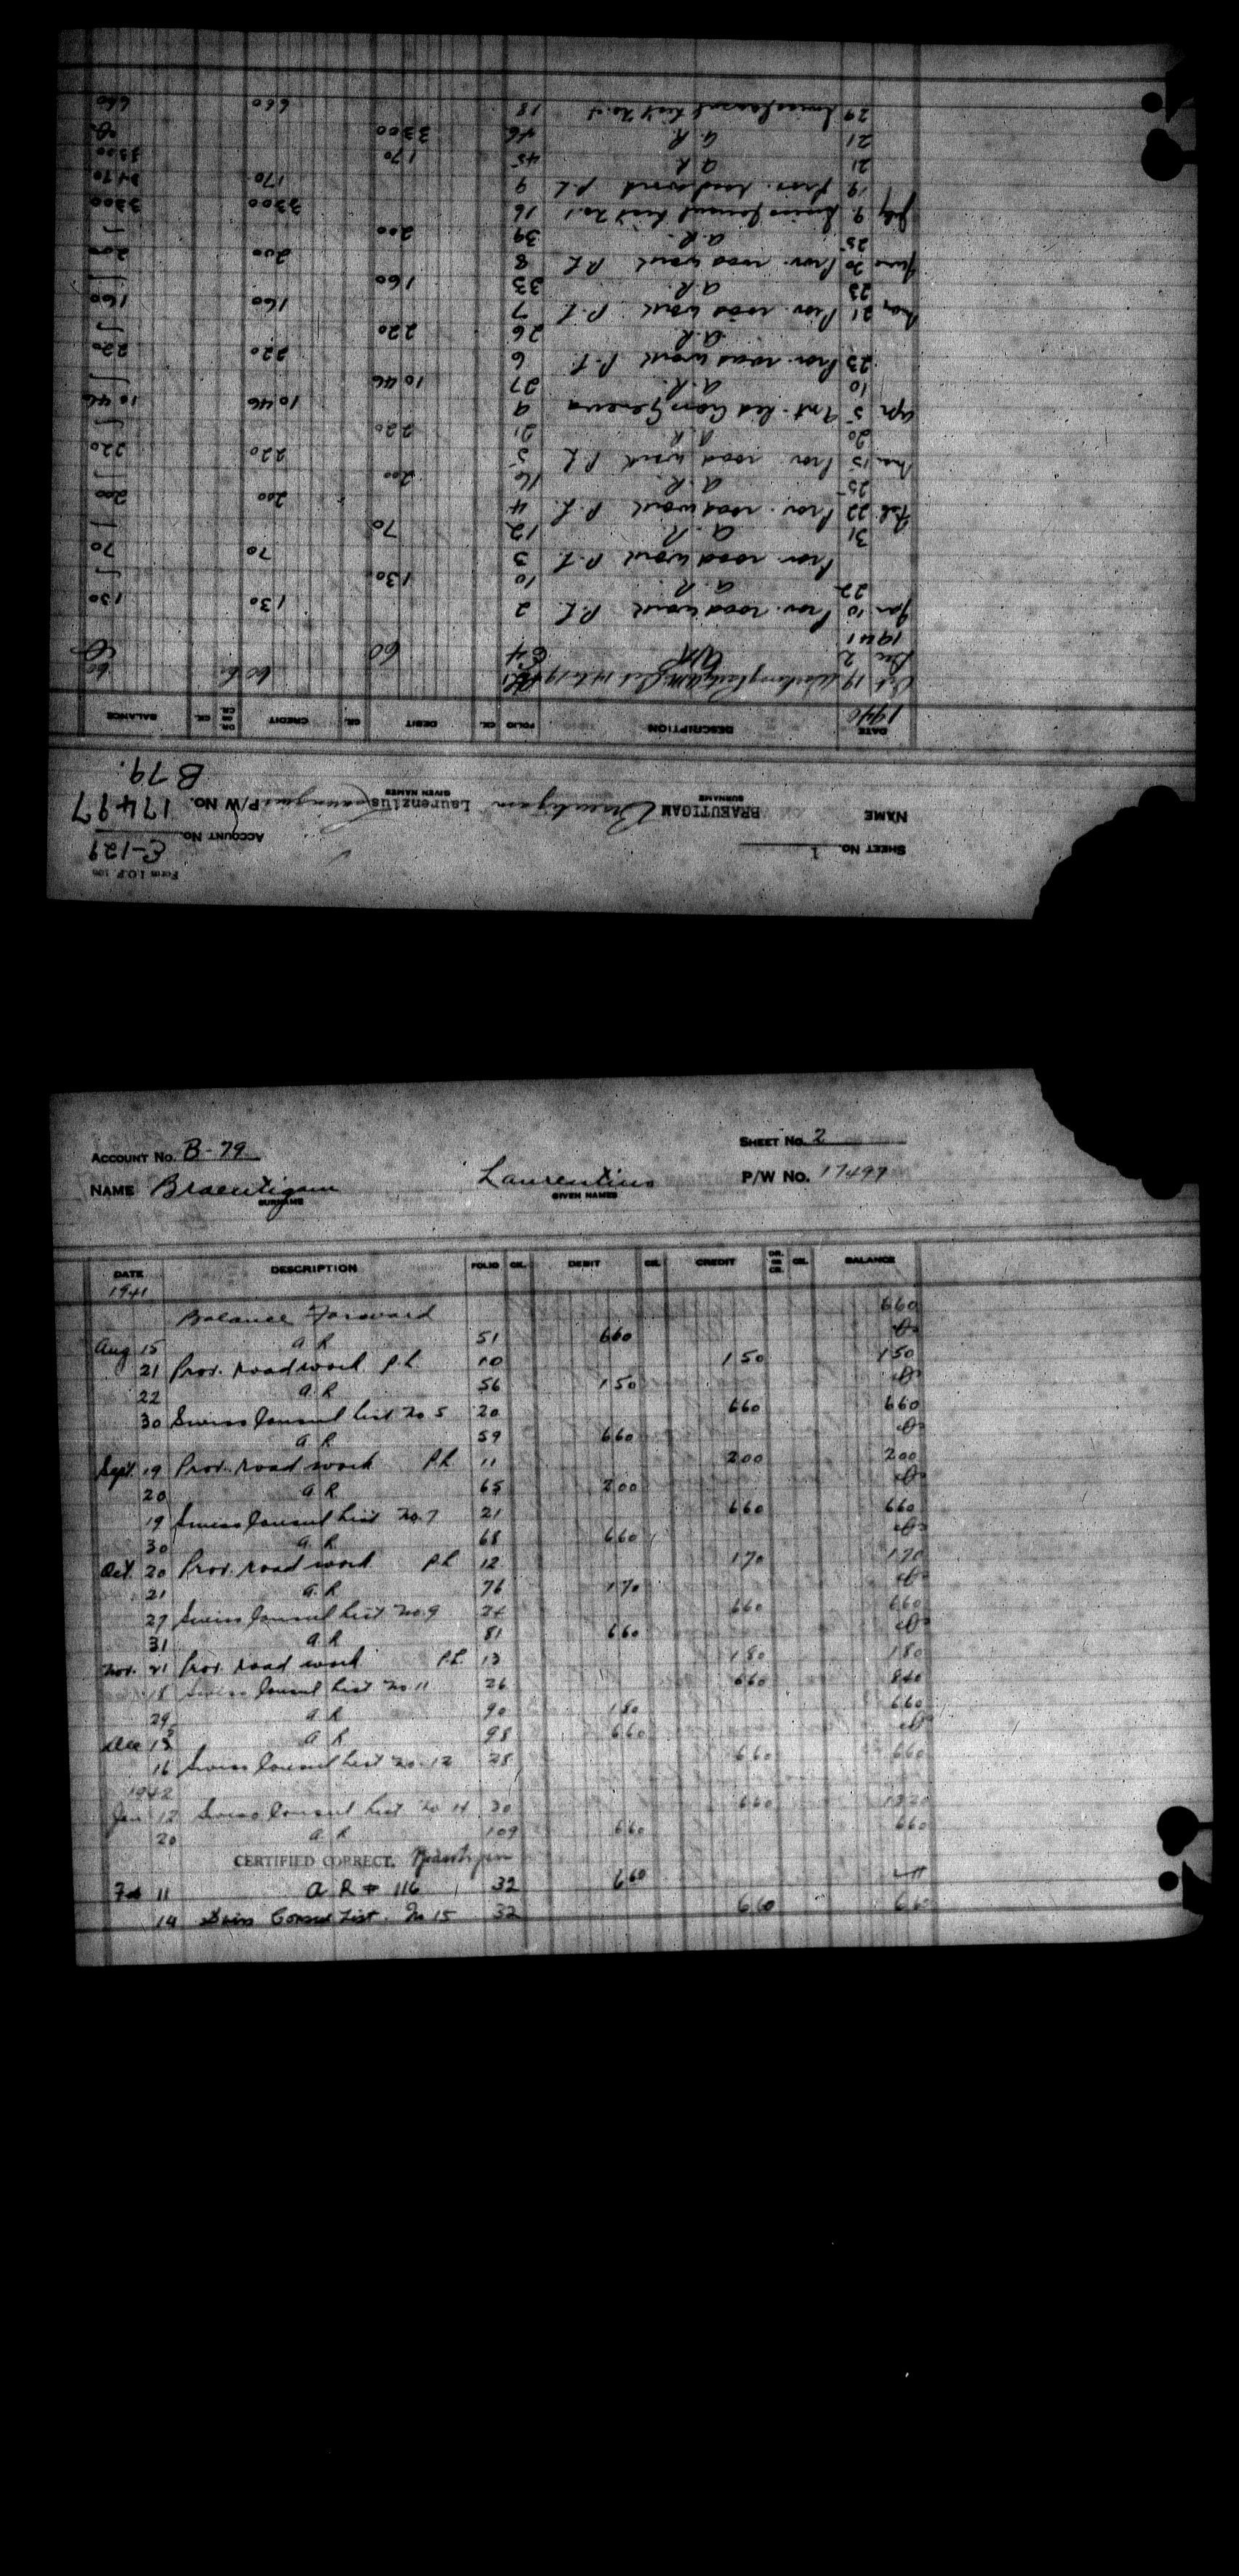 Form I.O.P. 100
SHEET NO. 1
E-129
ACCOUNT NO.
NAME BRAEUTIGAM Braeutigam Laurenzius P/W NO. 17497
SURNAME GIVEN NAMES
B 79.
DATE DESCRIPTION FOLIO CK. DEBIT CK. CREDIT DR. OR CR. CK. BALANCE
1940
Oct 19 60 60
Dec 2 A/R 64 60
1941
Jan 10 Prov. road work P.L. 2 130 130
22 A.R. 10 130
Prov. road work P.L. 3 70 70
31 A.R. 12 70
Feb 22 Prov. road work P.L. 4 200 200
25 A.R. 16 200
Mar 15 Prov. road work P.L. 5 220 220
20 A.R. 21 220
Apr 5 Int. Red Cross Geneva 9 1046 1046
10 A.R. 27 1046
23 Prov. road work P.L. 6 220 220
A.R. 26 220
May 21 Prov. road work P.L. 7 160 160
23 A.R. 33 160
June 20 Prov. road work P.L. 8 200 200
25 A.R. 39 200
July 9 Swiss Consul List No. 1 16 3300 3300
19 Prov. road work P.L. 9 170 3470
21 A.R. 45 170 3300
21 A.R. 46 3300
29 Swiss Consul List No. 4 18 660 660
ACCOUNT NO. B-79 SHEET NO. 2
NAME Braeutigam Laurentius P/W NO. 17497
SURNAME GIVEN NAMES
DATE DESCRIPTION FOLIO CK. DEBIT CK. CREDIT DR. OR CR. CK. BALANCE
1941
Balance Forward 660
Aug 15 A.R. 51 660
21 Prov. road work P.L. 10 150 150
22 A.R. 56 150
30 Swiss Consul List No 5 20 660 660
A.R. 59 660
Sept 19 Prov. road work P.L. 11 200 200
20 A.R. 65 200
19 Swiss Consul List No. 7 21 660 660
30 A.R. 68 660
Oct. 20 Prov. road work P.L. 12 170 170
21 A.R. 76 170
27 Swiss Consul List No. 9 24 660 660
31 A.R. 81 660
Nov. 21 Prov. road work P.L. 13 180 180
18 Swiss Consul List No. 11 26 660 840
29 A.R. 90 180 660
Dec 13 A.R. 98 660
16 Swiss Consul List No. 12 28 660 660
1942
Jan 12 Swiss Consul List No 14 30 660 1320
20 A.R. 109 660 660
CERTIFIED CORRECT.
Feb 11 A R # 116 32 660
14 Swiss Consul List. No 15 32 660 660